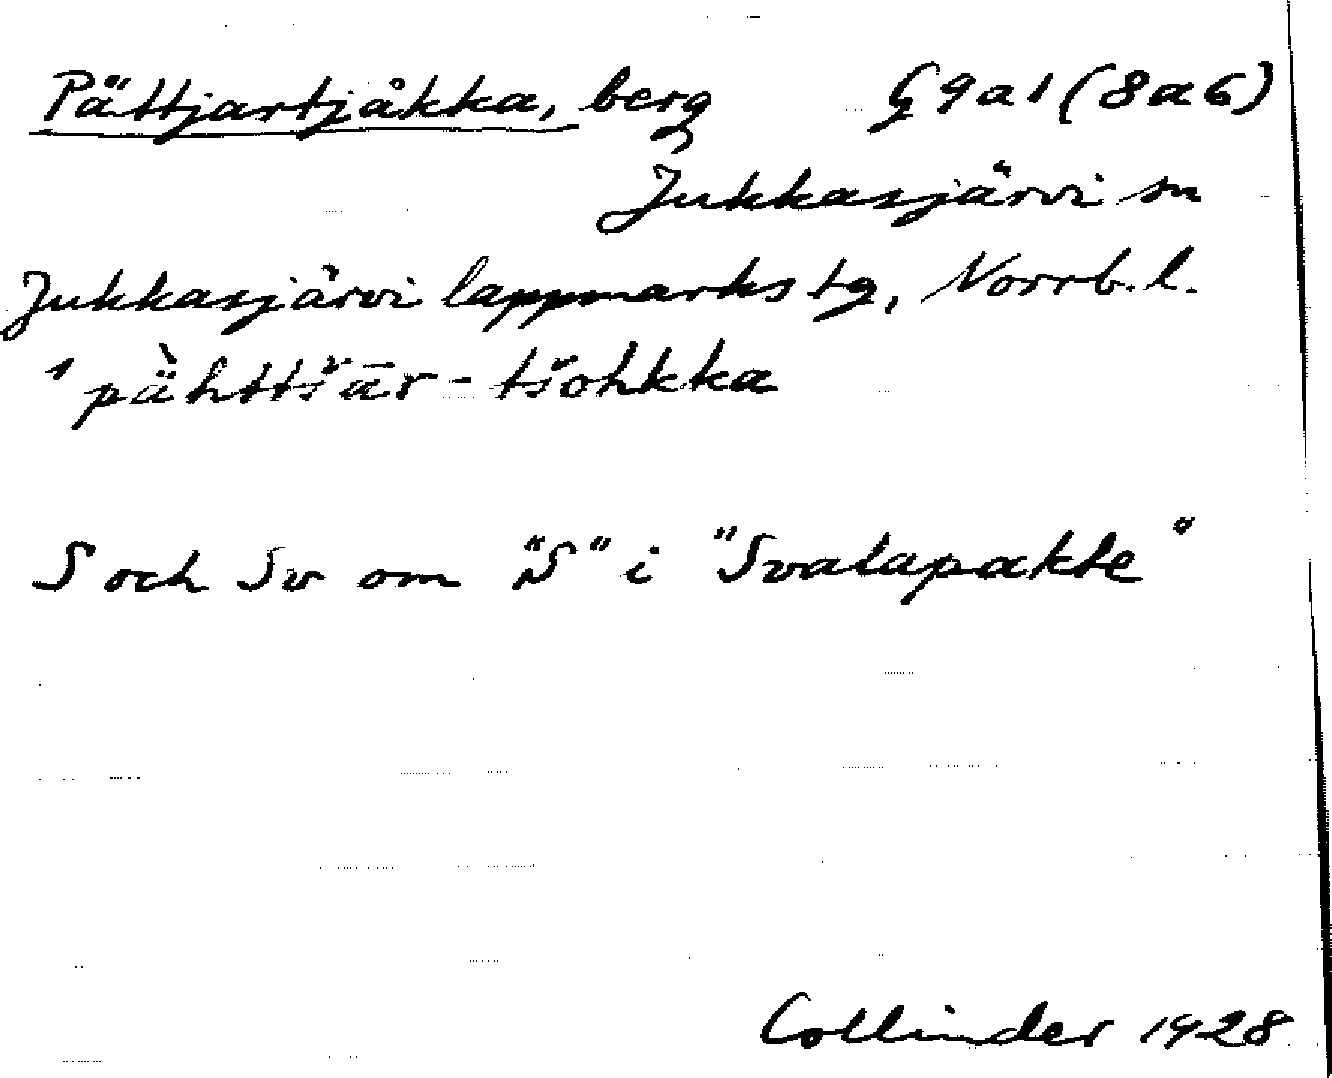 Pättjartjåkka, berg § 9a1 (8a6)
Jukkasjärvi sn
Jukkasjärvi lappmarks tg, Norrb. l.
' pä̀httšār - tšohkka
S och Sv om "S" i "Svalapakte"
Collinder 1928